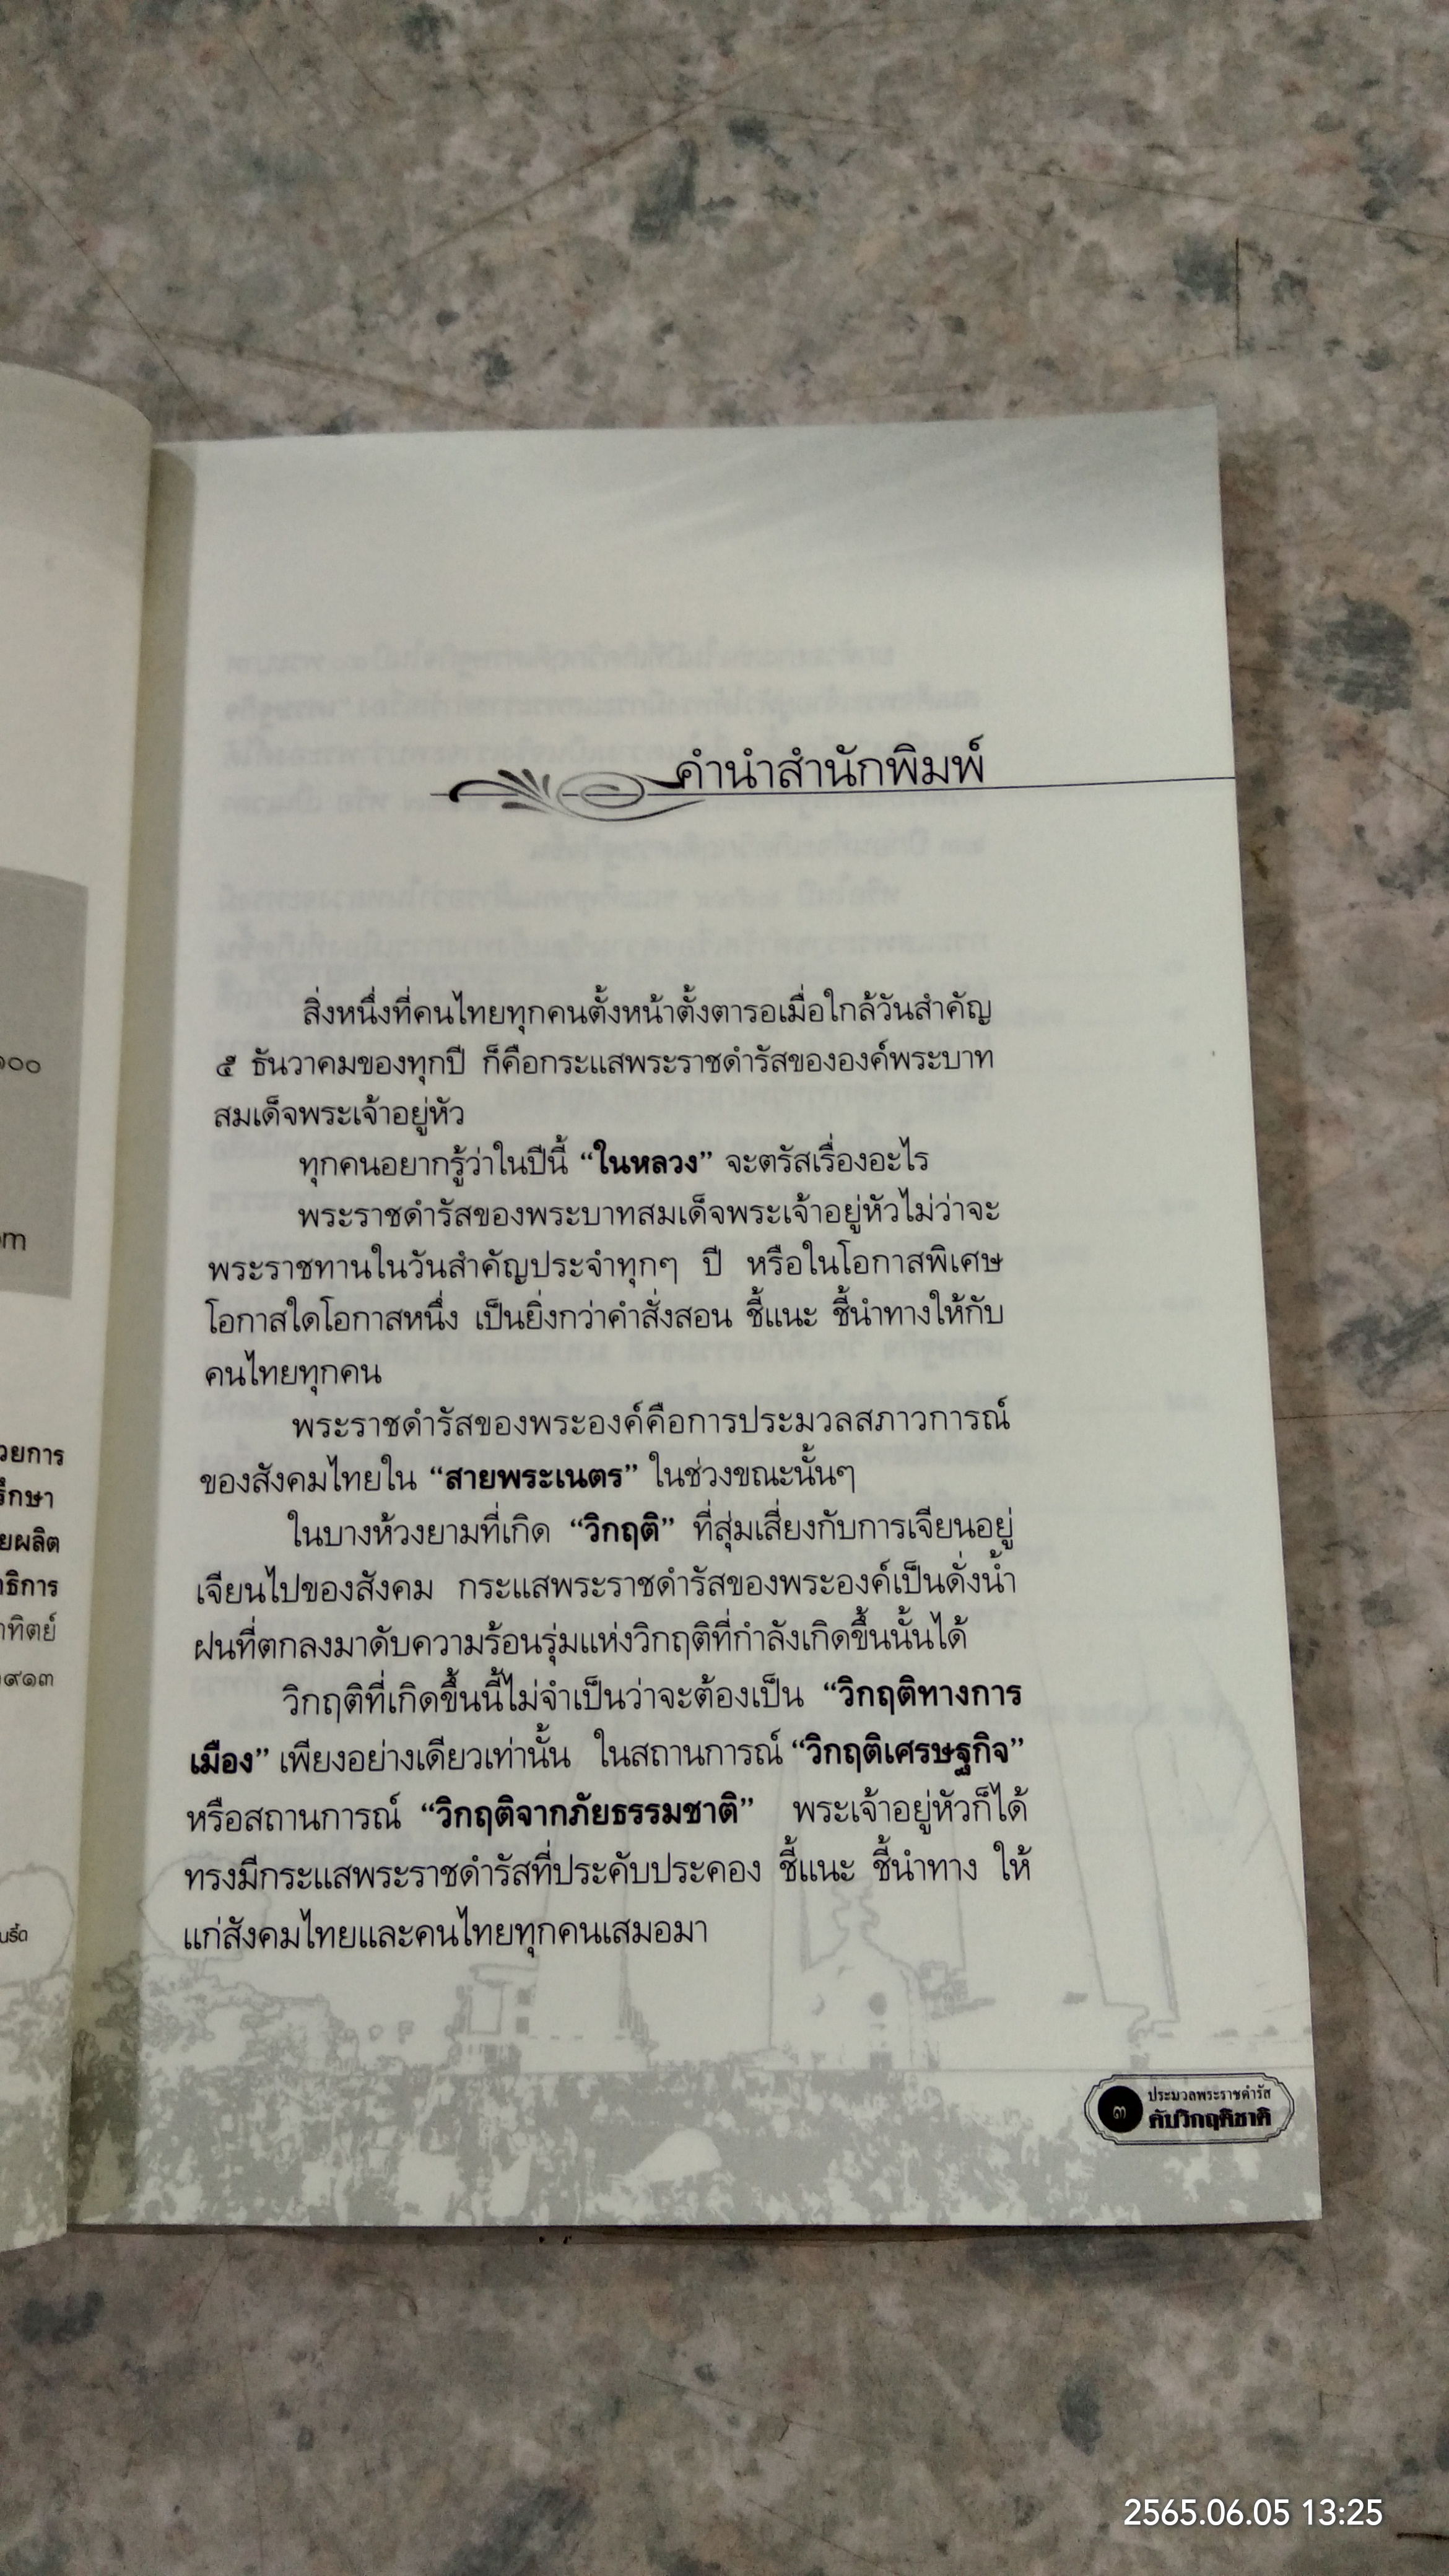 คำนำสำนักพิมพ์
สิ่งหนึ่งที่คนไทยทุกคนตั้งหน้าตั้งตารอเมื่อใกล้วันสำคัญ
๕ ธันวาคมของทุกปี ก็คือกระแสพระราชดำรัสขององค์พระบาท
สมเด็จพระเจ้าอยู่หัว
ทุกคนอยากรู้ว่าในปีนี้ “ในหลวง” จะตรัสเรื่องอะไร
พระราชดำรัสของพระบาทสมเด็จพระเจ้าอยู่หัวไม่ว่าจะ
พระราชทานในวันสำคัญประจำทุกๆ ปี หรือในโอกาสพิเศษ
โอกาสใดโอกาสหนึ่ง เป็นยิ่งกว่าคำสั่งสอน ชี้แนะ ชี้นำทางให้กับ
คนไทยทุกคน
พระราชดำรัสของพระองค์คือการประมวลสภาวการณ์
ของสังคมไทยใน “สายพระเนตร” ในช่วงขณะนั้นๆ
ในบางห้วงยามที่เกิด “วิกฤติ” ที่สุ่มเสี่ยงกับการเจียนอยู่
เจียนไปของสังคม กระแสพระราชดำรัสของพระองค์เป็นดั่งน้ำ
ฝนที่ตกลงมาดับความร้อนรุ่มแห่งวิกฤติที่กำลังเกิดขึ้นนั้นได้
วิกฤติที่เกิดขึ้นนี้ไม่จำเป็นว่าจะต้องเป็น “วิกฤติทางการ
เมือง” เพียงอย่างเดียวเท่านั้น ในสถานการณ์ “วิกฤติเศรษฐกิจ”
หรือสถานการณ์ “วิกฤติจากภัยธรรมชาติ” พระเจ้าอยู่หัวก็ได้
ทรงมีกระแสพระราชดำรัสที่ประคับประคอง ชี้แนะ ชี้นำทาง ให้
แก่สังคมไทยและคนไทยทุกคนเสมอมา
๓
ประมวลพระราชดำรัส
ดับวิกฤติชาติ
2565.06.05 13:25